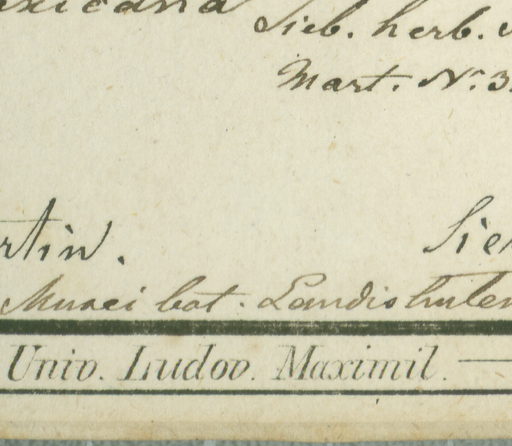 xicana Sieb. herb.
Mart. Nr. 3
rtin. Sie
Musei bot. Landishuten
Univ. Ludov. Maximil.